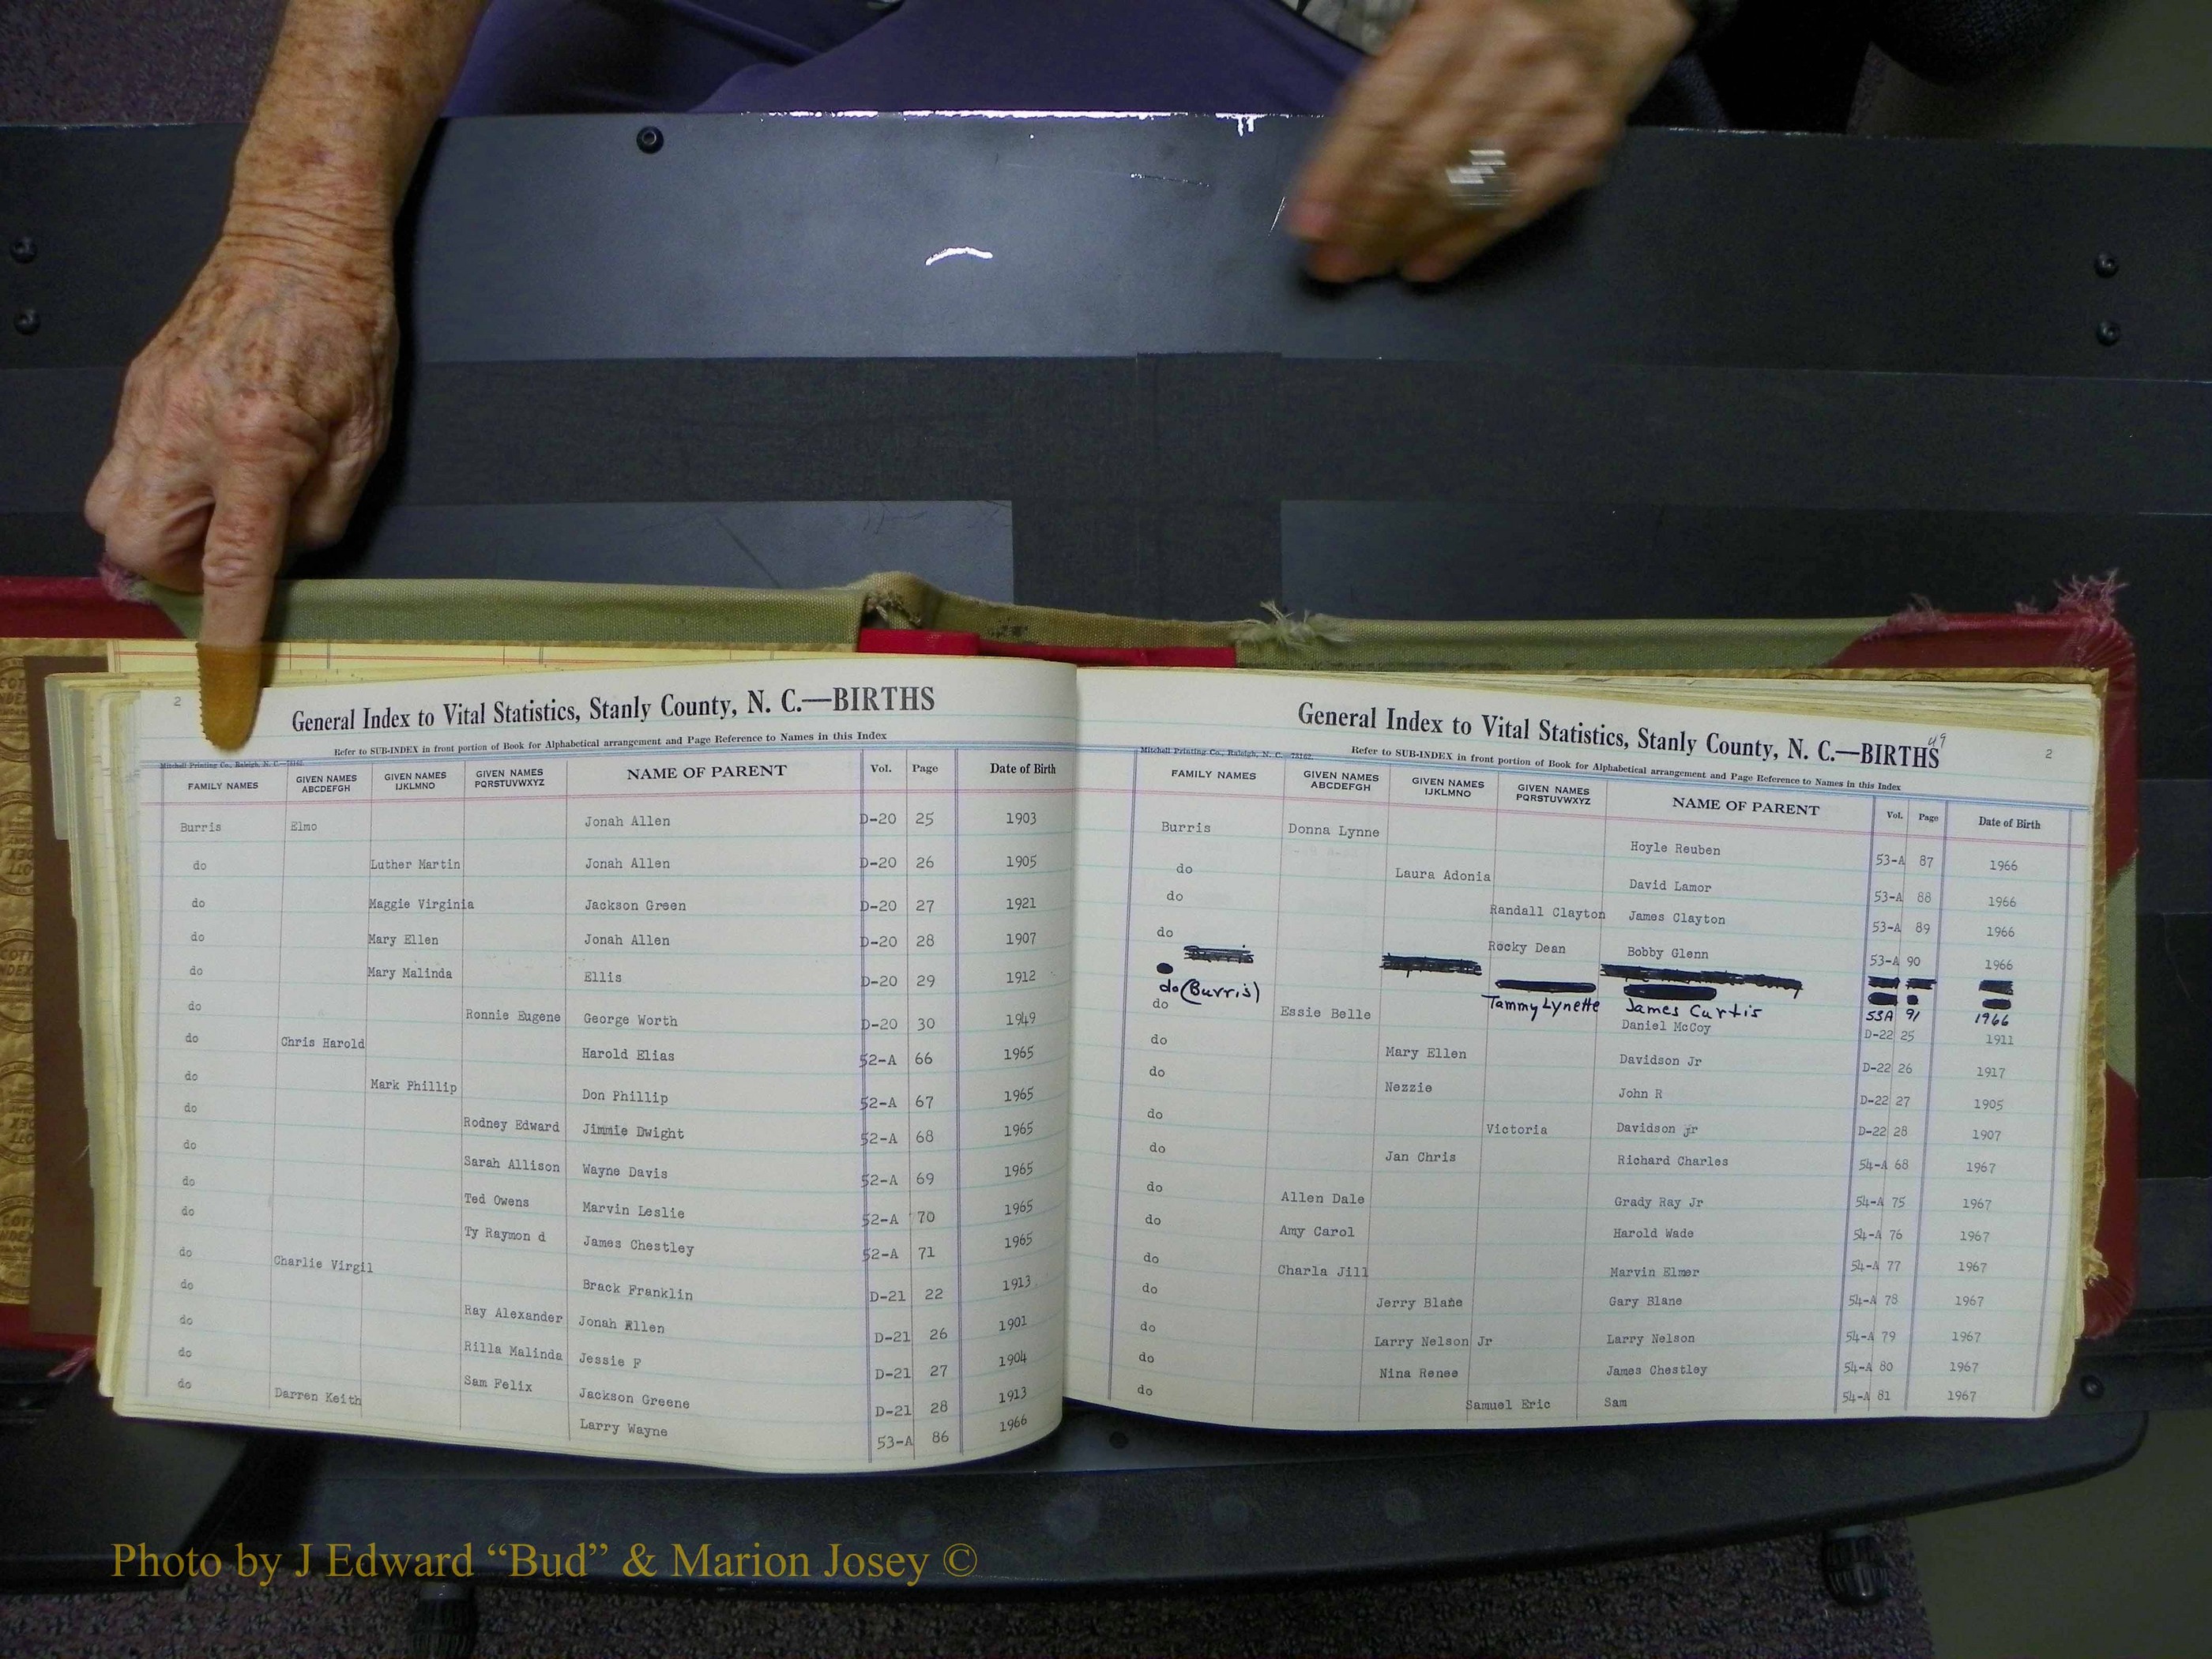 2
General Index to Vital Statistics, Stanly County, N. C.—BIRTHS
Refer to SUB-INDEX in front portion of Book for Alphabetical arrangement and Page Reference to Names in this Index
Mitchell Printing Co., Raleigh, N. C.—75162
FAMILY NAMES GIVEN NAMES ABCDEFGH GIVEN NAMES IJKLMNO GIVEN NAMES PQRSTUVWXYZ NAME OF PARENT Vol. Page Date of Birth
Burris Elmo Jonah Allen D-20 25 1903
do Luther Martin Jonah Allen D-20 26 1905
do Maggie Virginia Jackson Green D-20 27 1921
do Mary Ellen Jonah Allen D-20 28 1907
do Mary Malinda Ellis D-20 29 1912
do Ronnie Eugene George Worth D-20 30 1949
do Chris Harold Harold Elias 52-A 66 1965
do Mark Phillip Don Phillip 52-A 67 1965
do Rodney Edward Jimmie Dwight 52-A 68 1965
do Sarah Allison Wayne Davis 52-A 69 1965
do Ted Owens Marvin Leslie 52-A 70 1965
do Ty Raymon d James Chestley 52-A 71 1965
do Charlie Virgil Brack Franklin D-21 22 1913
do Ray Alexander Jonah Allen D-21 26 1901
do Rilla Malinda Jessie F D-21 27 1904
do Sam Felix Jackson Greene D-21 28 1913
do Darren Keith Larry Wayne 53-A 86 1966
49
General Index to Vital Statistics, Stanly County, N. C.—BIRTHS
2
Mitchell Printing Co., Raleigh, N. C.—75162
Refer to SUB-INDEX in front portion of Book for Alphabetical arrangement and Page Reference to Names in this Index
FAMILY NAMES GIVEN NAMES ABCDEFGH GIVEN NAMES IJKLMNO GIVEN NAMES PQRSTUVWXYZ NAME OF PARENT Vol. Page Date of Birth
Burris Donna Lynne Hoyle Reuben 53-A 87 1966
do Laura Adonia David Lamor 53-A 88 1966
do Randall Clayton James Clayton 53-A 89 1966
do Rocky Dean Bobby Glenn 53-A 90 1966
do (Burris) Tammy Lynette James Curtis 53A 91 1966
do Essie Belle Daniel McCoy D-22 25 1911
do Mary Ellen Davidson Jr D-22 26 1917
do Nezzie John R D-22 27 1905
do Victoria Davidson jr D-22 28 1907
do Jan Chris Richard Charles 54-A 68 1967
do Allen Dale Grady Ray Jr 54-A 75 1967
do Amy Carol Harold Wade 54-A 76 1967
do Charla Jill Marvin Elmer 54-A 77 1967
do Jerry Blane Gary Blane 54-A 78 1967
do Larry Nelson Jr Larry Nelson 54-A 79 1967
do Nina Renee James Chestley 54-A 80 1967
do Samuel Eric Sam 54-A 81 1967
Photo by J Edward “Bud” & Marion Josey ©